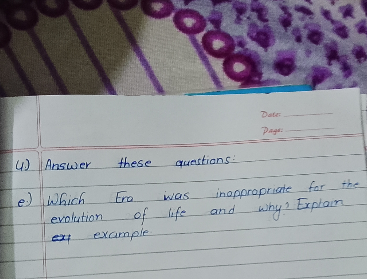 Date:
Page:
4) Answer these questions:
e) Which Era was inappropriate for the
evolution of life and why? Explain
example